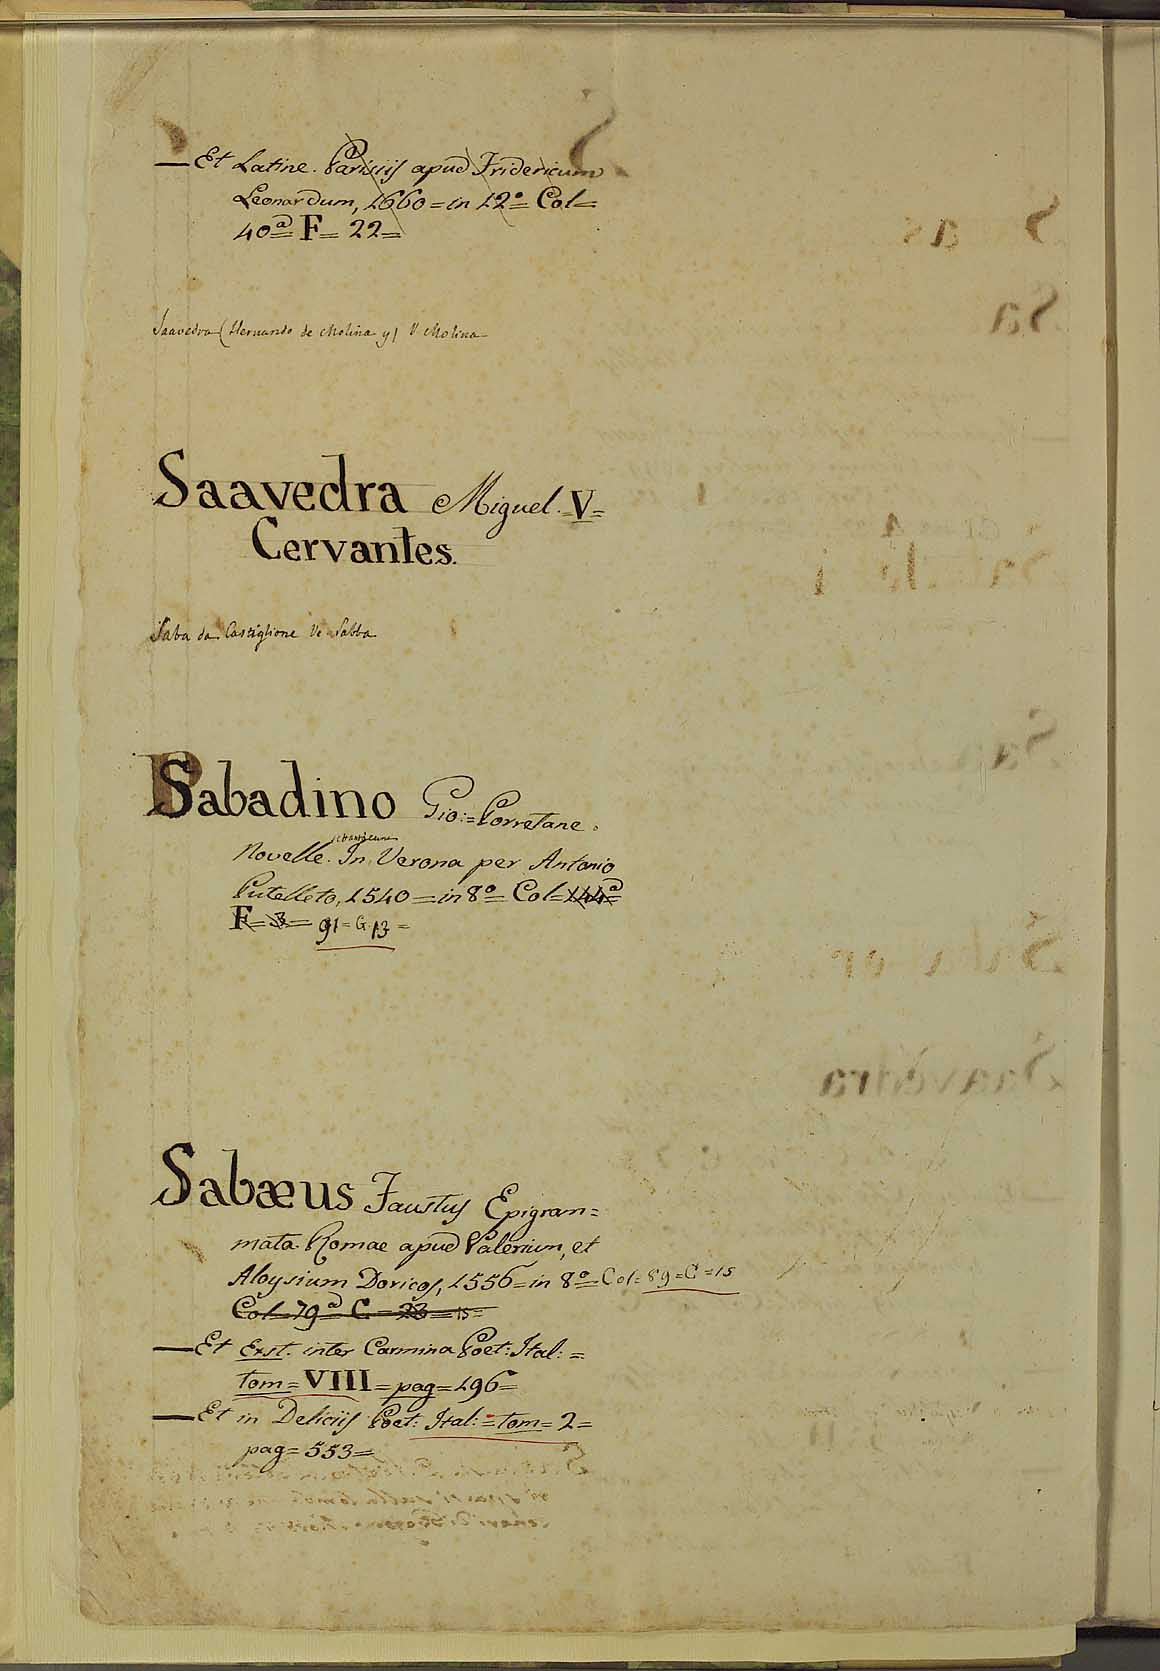 — Et Latine. Parisiis apud Fridericum
Leonardum, 1660 = in 12º = Col =
40ª F = 22 =
Saavedra (Hernando de Molina y) V Molina
Saavedra Miguel. V =
Cervantes.
Saba da Castiglione Ve Sabba
Sabadino Gio: = Porretane.
Novelle. In Verona per Antonio
Putelleto, 1540 = in 8º = Col = 144ª =
F = 3 = 91 = G. 13 =
Sabæus Faustus Epigram=
mata. Romae apud Valerium, et
Aloysium Doricos, 1556 = in 8º = Col = 89 = C = 15
Col = 79ª C = 23 = 15 =
— Et Erst. inter Carmina Poet: Ital: =
tom = VIII = pag = 196 =
— Et in Deliciis Poet: Ital: = tom = 2 =
pag = 553 =